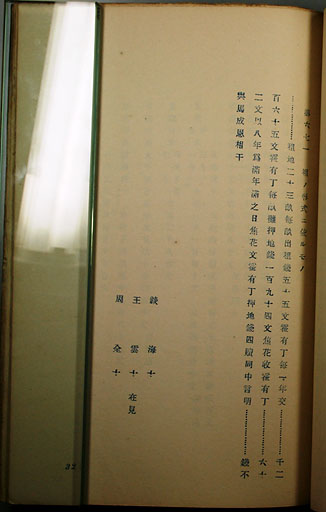 租地二十三畝每畝出租錢五十五文霍有丁每一年交……………千二
百六十五文霍有丁每畝攤押地錢一百九十四文焦花收霍有丁……………六十
二文以八年爲滿年滿之日焦花文霍有丁押地錢四願同中言明……………錢不
與馬成恩相干
錢 海 十
王 雲 十 在見
周 全 十
32